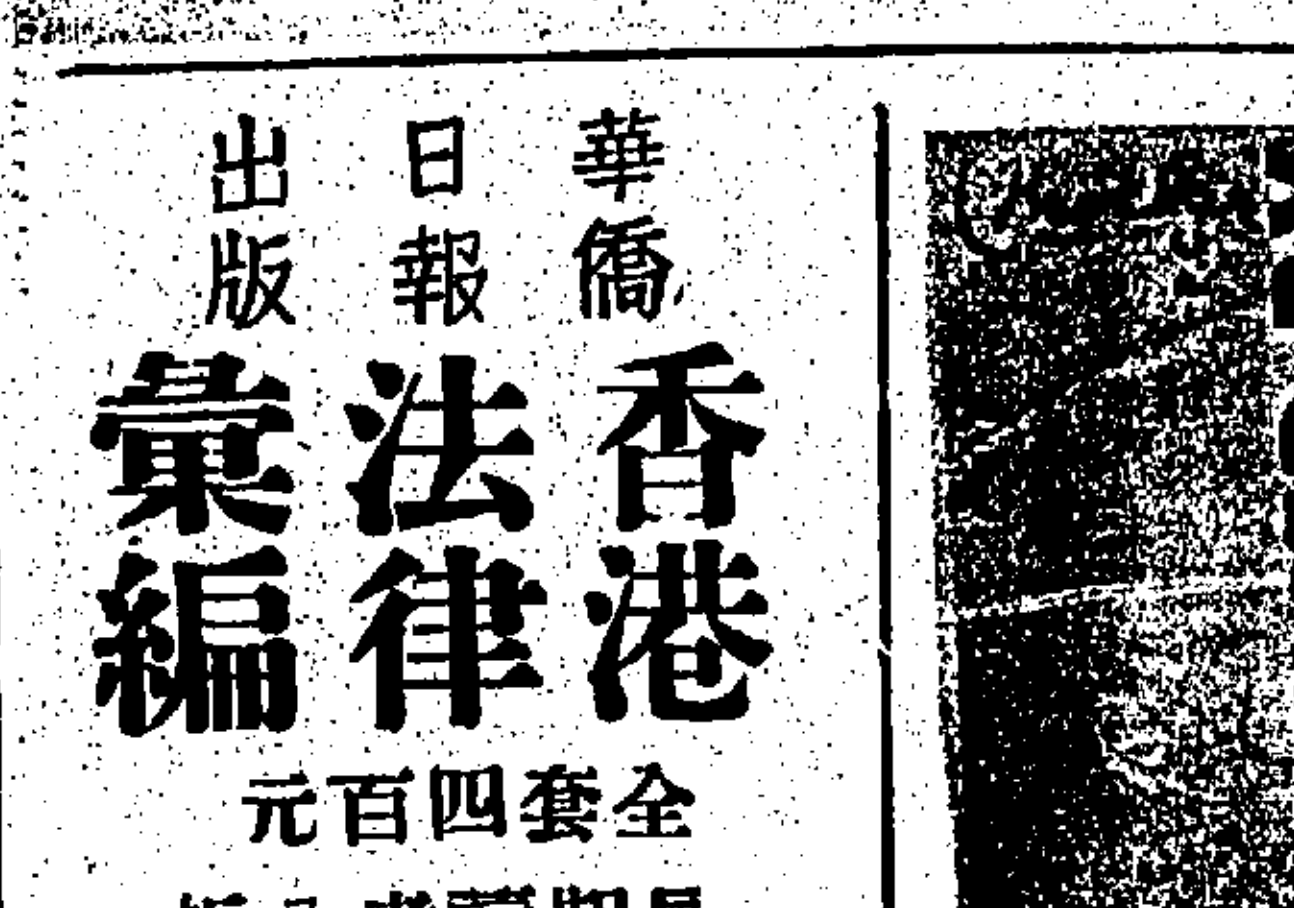 華僑日報出版
香港法律彙編
全套四百元